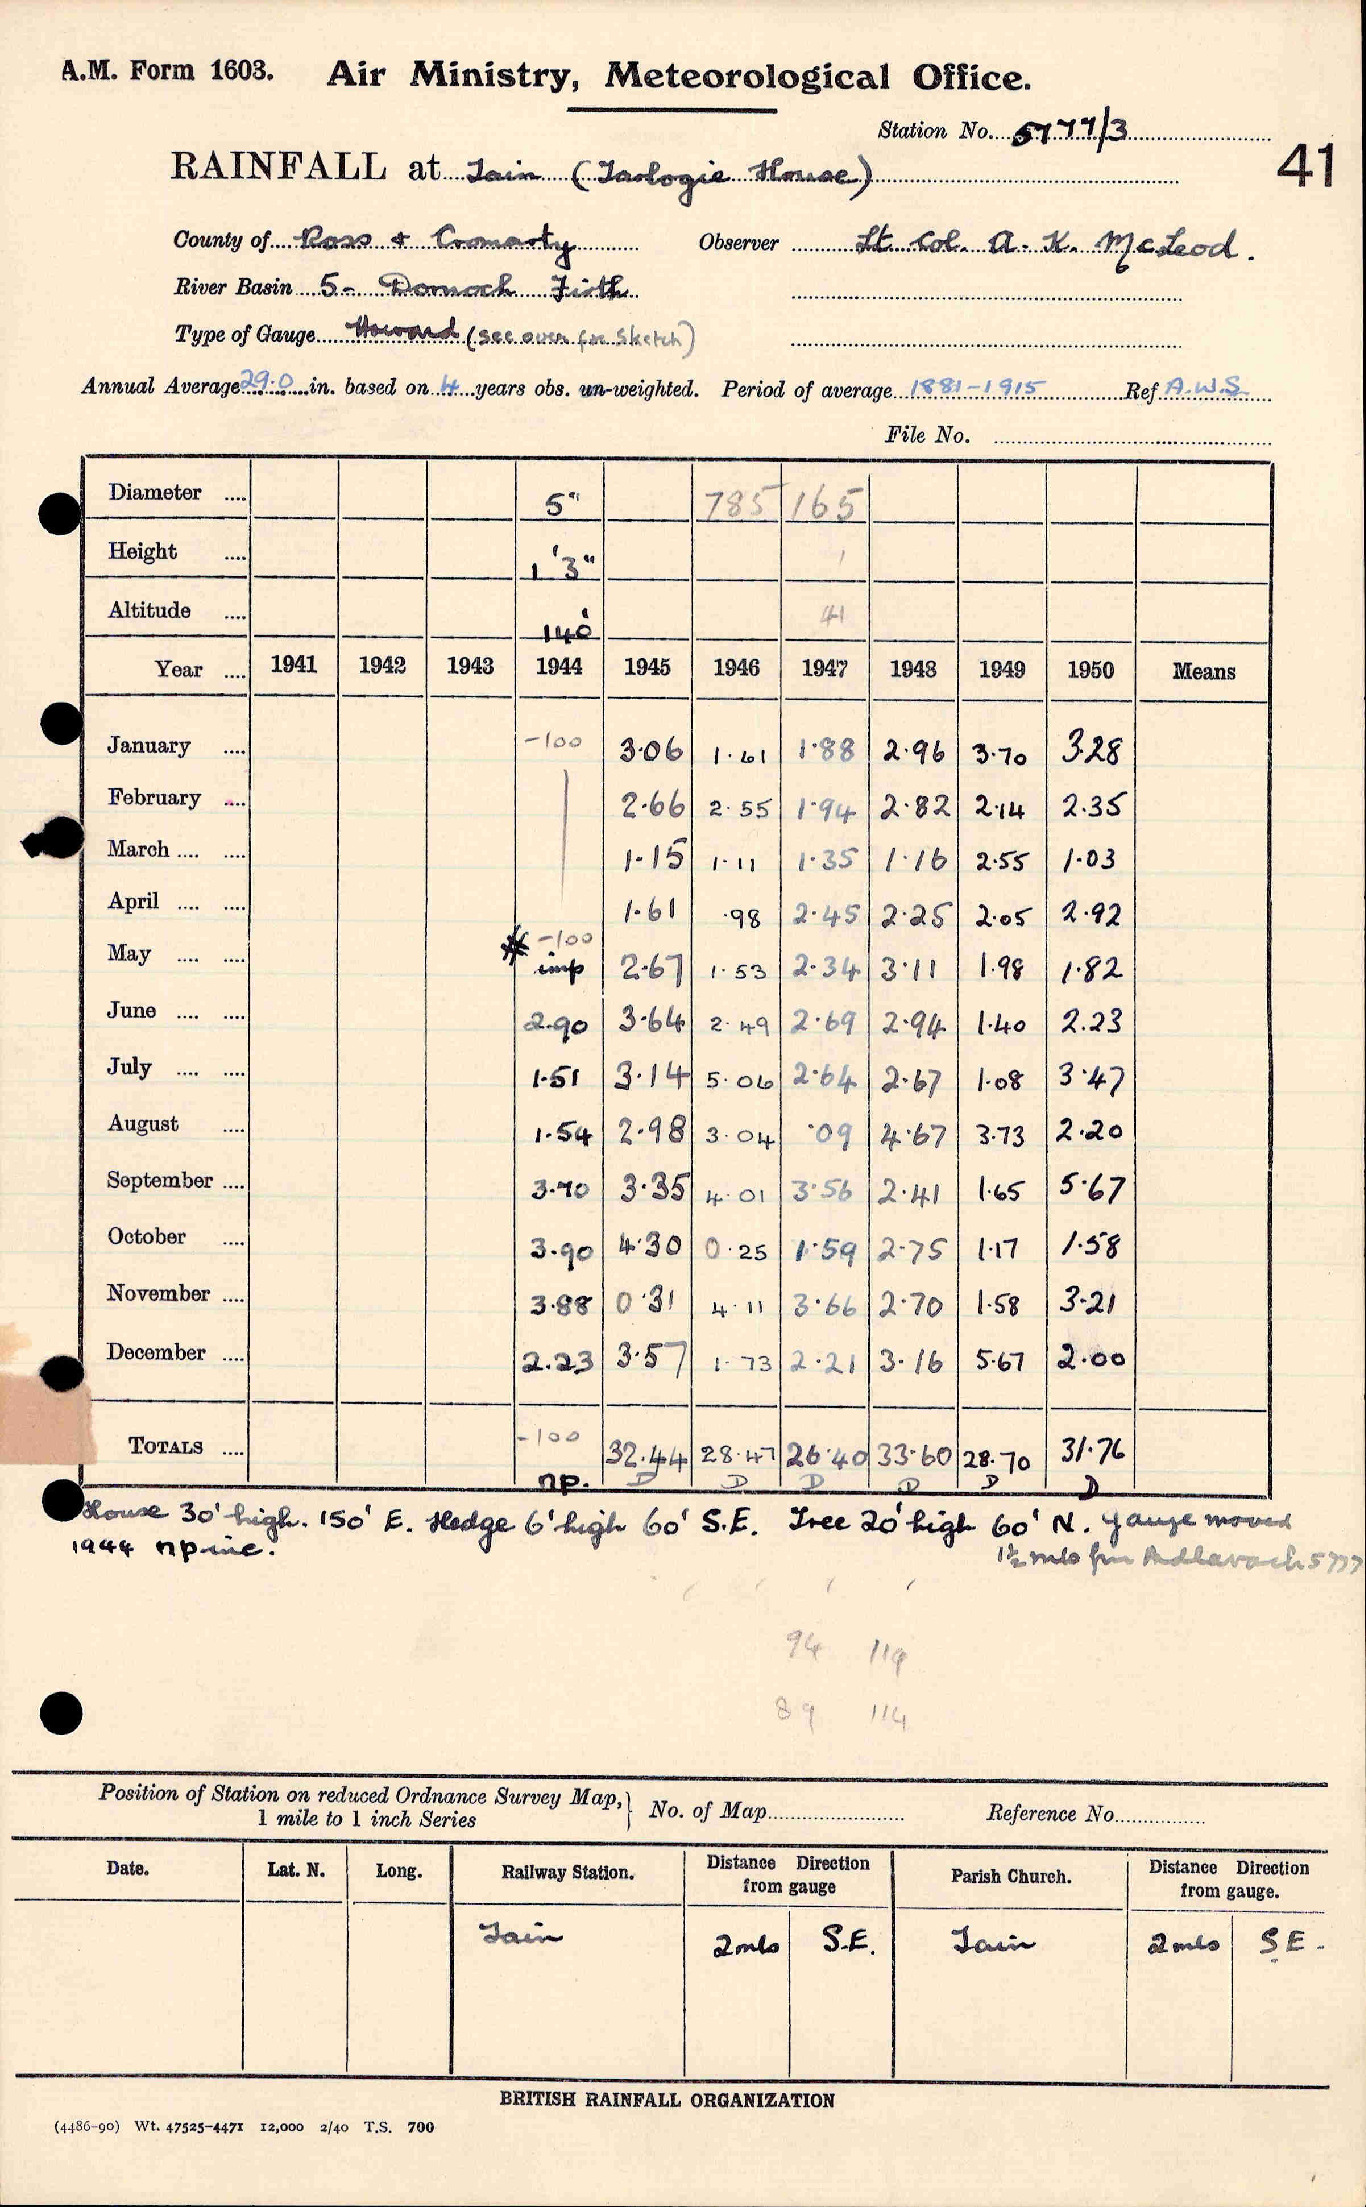 A.M. Form 1603. Air Ministry, Meteorological Office.
Station No. 5777/3
41
RAINFALL at Tain (Tarlogie House)
County of Ross & Cromarty Observer Lt Col. A. K. McLeod.
River Basin 5- Dornoch Firth
Type of Gauge Howard (see over for sketch)
Annual Average 29.0 in. based on 4 years obs. un-weighted. Period of average 1881-1915 Ref A.W.S.
File No.
Diameter .... 5" 785 165
Height .... 1'3"
Altitude .... 140' 41
Year .... 1941 1942 1943 1944 1945 1946 1947 1948 1949 1950 Means
January .... -100 3.06 1.61 1.88 2.96 3.70 3.28
February .... 2.66 2.55 1.94 2.82 2.14 2.35
March .... .... 1.15 1.11 1.35 1.16 2.55 1.03
April .... .... 1.61 .98 2.45 2.25 2.05 2.92
-100
May .... .... imp 2.67 1.53 2.34 3.11 1.98 1.82
June .... .... 2.90 3.64 2.49 2.69 2.94 1.40 2.23
July .... .... 1.51 3.14 5.06 2.64 2.67 1.08 3.47
August .... 1.54 2.98 3.04 .09 4.67 3.73 2.20
September .... 3.70 3.35 4.01 3.56 2.41 1.65 5.67
October .... 3.90 4.30 0.25 1.59 2.75 1.17 1.58
November .... 3.88 0.31 4.11 3.66 2.70 1.58 3.21
December .... 2.23 3.57 1.73 2.21 3.16 5.67 2.00
TOTALS .... -100 32.44 28.47 26.40 33.60 28.70 31.76
np. D D D D D D
House 30' high. 150' E. Hedge 6' high 60' S.E. Tree 20' high 60' N. gauge moved
1944 np inc. 1½ mls from 5777
94 119
89 114
Position of Station on reduced Ordnance Survey Map, 1 mile to 1 inch Series } No. of Map Reference No.
Date. Lat. N. Long. Railway Station. Distance Direction from gauge Parish Church. Distance Direction from gauge.
Tain 2 mls S.E. Tain 2 mls S.E.
BRITISH RAINFALL ORGANIZATION
(4486-90) Wt. 47525-4471 12,000 2/40 T.S. 700